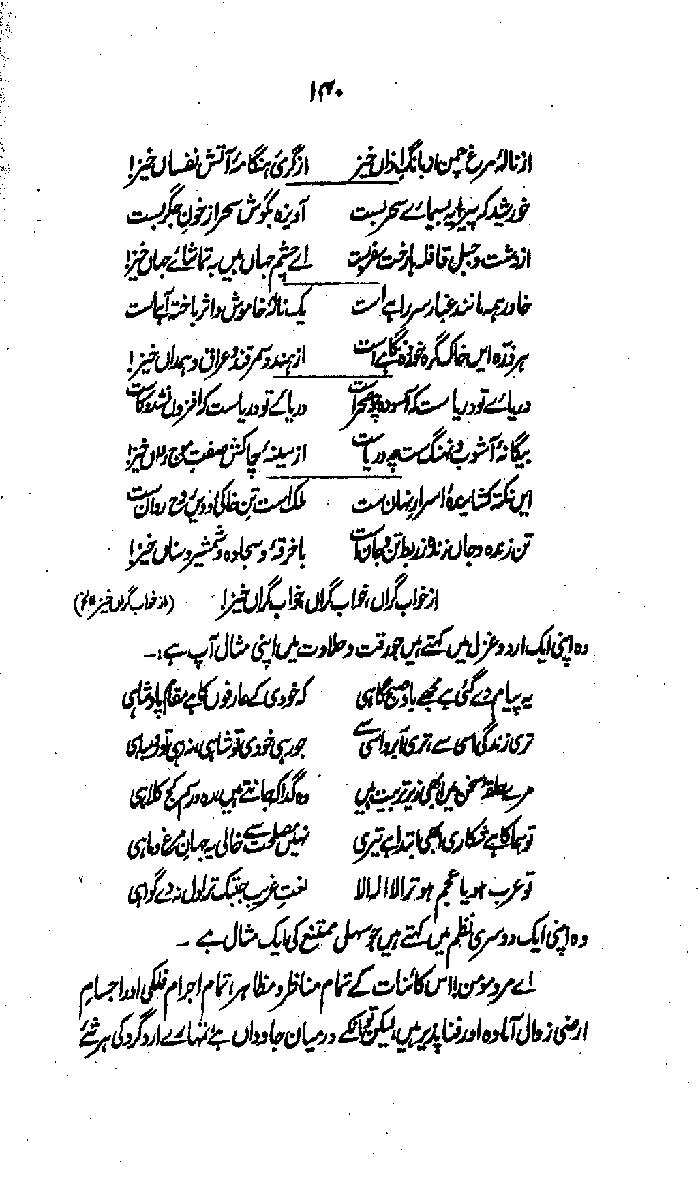 ۱۴۰
از نالۂ مرغ چمن از بانگ اذاں خیز از گرمیٔ ہنگامۂ آتش نفساں خیز!
خورشید کہ پیرایہ بسیمائے سحر بست آویزہ بگوش سحر از خونِ جگر بست
از دشت و جبل قافلہ ہا رخت سفر بست اے چشم جہاں بیں بہ تماشائے جہاں خیز!
خاور ہمہ مانند غبار سر راہے است یک نالۂ خاموش و اثر باختہ آہے است
ہر ذرّہ ایں خاک گرہ خوردہ نگاہے است از ہند و سمرقند و عراق و ہمداں خیز!
دریائے تو دریا ست کہ آسودہ چو صحراست دریائے تو دریاست کہ افزوں نشد و کاست
بیگانۂ آشوب و نہنگ ست چہ دریاست از سینۂ چاکش صفت موج رواں خیز!
ایں نکتہ کشایندۂ اسرارِ نہان ست ملک است تن خاکی و دیں روح روان ست
تن زندہ و جاں زندہ ز ربط تن و جان است با خرقہ و سجادہ و شمشیر و سناں خیز!
از خواب گراں، خواب گراں، خواب گراں خیز! (از خواب گراں خیز)
وہ اپنی ایک اردو غزل میں کہتے ہیں جو رقت و حلاوت میں اپنی مثال آپ ہے:۔
یہ پیام دے گئی ہے مجھے باد صبح گاہی کہ خودی کے عارفوں کا ہے مقام پادشاہی
تری زندگی اسی سے، تری آبرو اسی سے جو رہی خودی تو شاہی، نہ رہی تو روسیاہی
مرے حلقۂ سخن میں ابھی زیر تربیت ہیں وہ گدا کہ جانتے ہیں رہ و رسم کج کلاہی
تو ہما کا ہے شکاری ابھی ابتدا ہے تیری نہیں مصلحت سے خالی یہ جہان مرغ و ماہی
تو عرب ہو یا عجم ہو ترا لا الٰہ الا لغت غریب جب تک ترا دل نہ دے گواہی
وہ اپنی ایک دوسری نظم میں کہتے ہیں جو سہل ممتنع کی ایک مثال ہے۔
اے مرد مومن! اس کائنات کے تمام مناظر و مظاہر، تمام اجرام فلکی اور اجسام
ارضی زوال آمادہ اور فنا پذیر ہیں، لیکن تو ان کے درمیان جاوداں ہے تمہارے ارد گرد کی ہر شئے